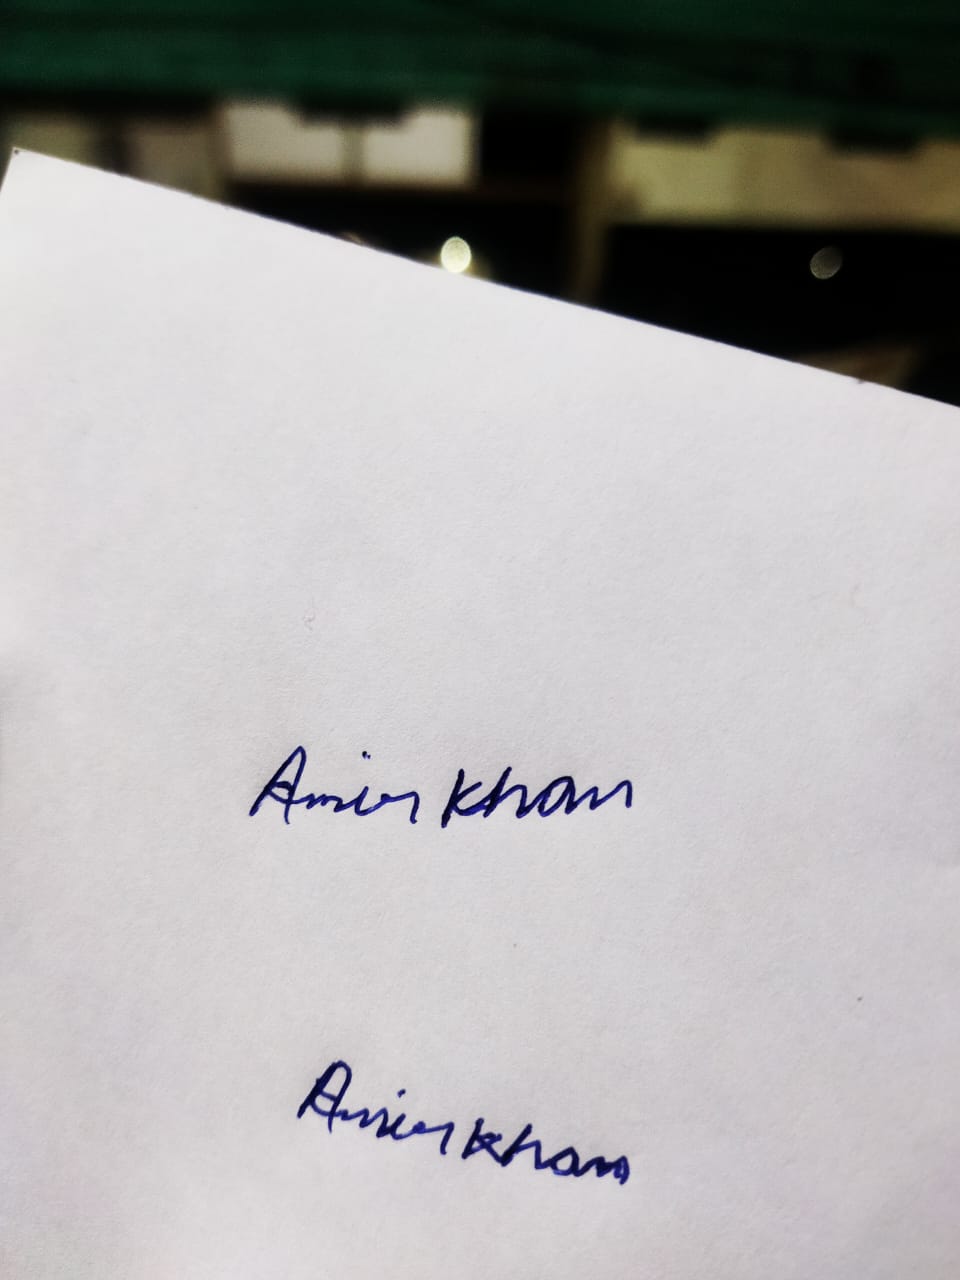 Amir Khan
Amir Khan